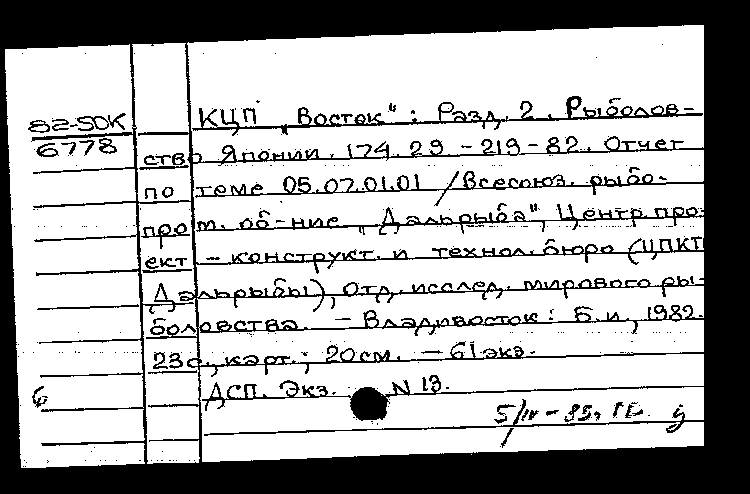 82-5DK
6778
КЦП „Восток": Разд. 2. Рыболов-
ство Японии. 174. 29 - 219 - 82. Отчет
по теме 05.07.01.01 / Всесоюз. рыбо-
пром. об-ние „Дальрыба", Центр. про-
ект - конструкт. и технол. бюро (ЦПКТ
Дальрыбы), Отд. исслед. мирового ры-
боловства. - Владивосток: Б.и., 1982.
23с., карт.; 20см. - 61экз.
6 ДСП. Экз. N 13.
5/IV - 83,